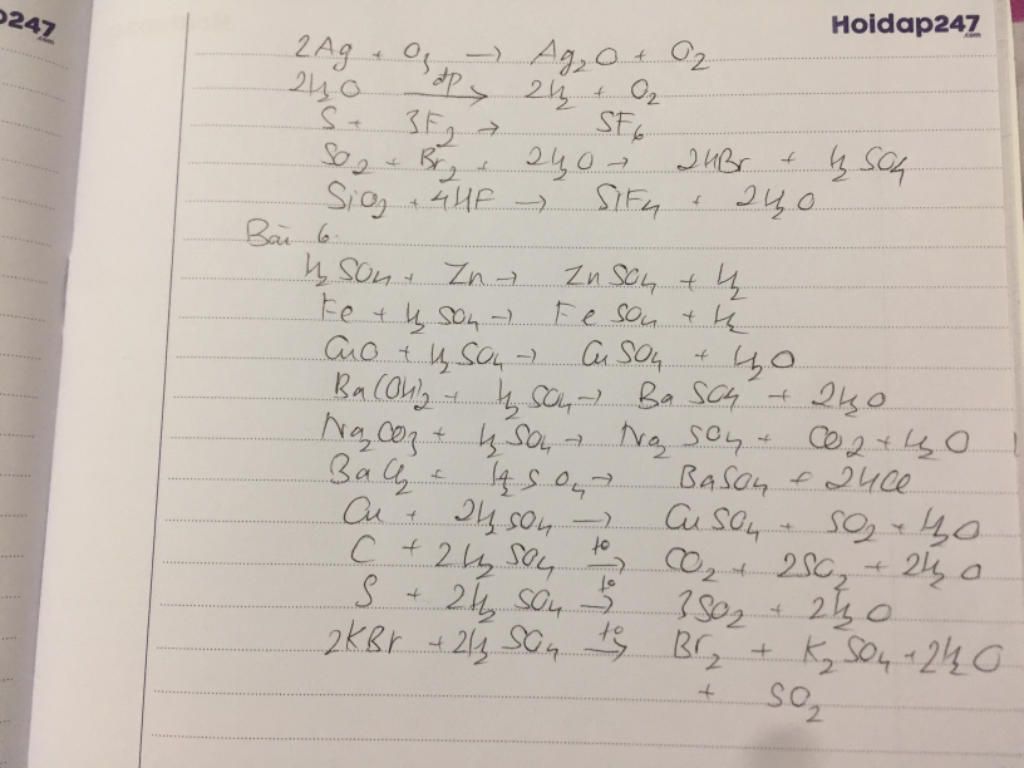 247
.com
Hoidap247
.com
2Ag + O3 → Ag2O + O2
2H2O đp→ 2H2 + O2
S + 3F2 → SF6
SO2 + Br2 + 2H2O → 2HBr + H2SO4
SiO2 + 4HF → SiF4 + 2H2O
Bài 6.
H2SO4 + Zn → ZnSO4 + H2
Fe + H2SO4 → FeSO4 + H2
CuO + H2SO4 → CuSO4 + H2O
Ba(OH)2 + H2SO4 → BaSO4 + 2H2O
Na2CO3 + H2SO4 → Na2SO4 + CO2 + H2O
BaCl2 + H2SO4 → BaSO4 + 2HCl
Cu + 2H2SO4 → CuSO4 + SO2 + H2O
C + 2H2SO4 to→ CO2 + 2SO2 + 2H2O
S + 2H2SO4 to→ 3SO2 + 2H2O
2KBr + 2H2SO4 to→ Br2 + K2SO4 + 2H2O
+ SO2